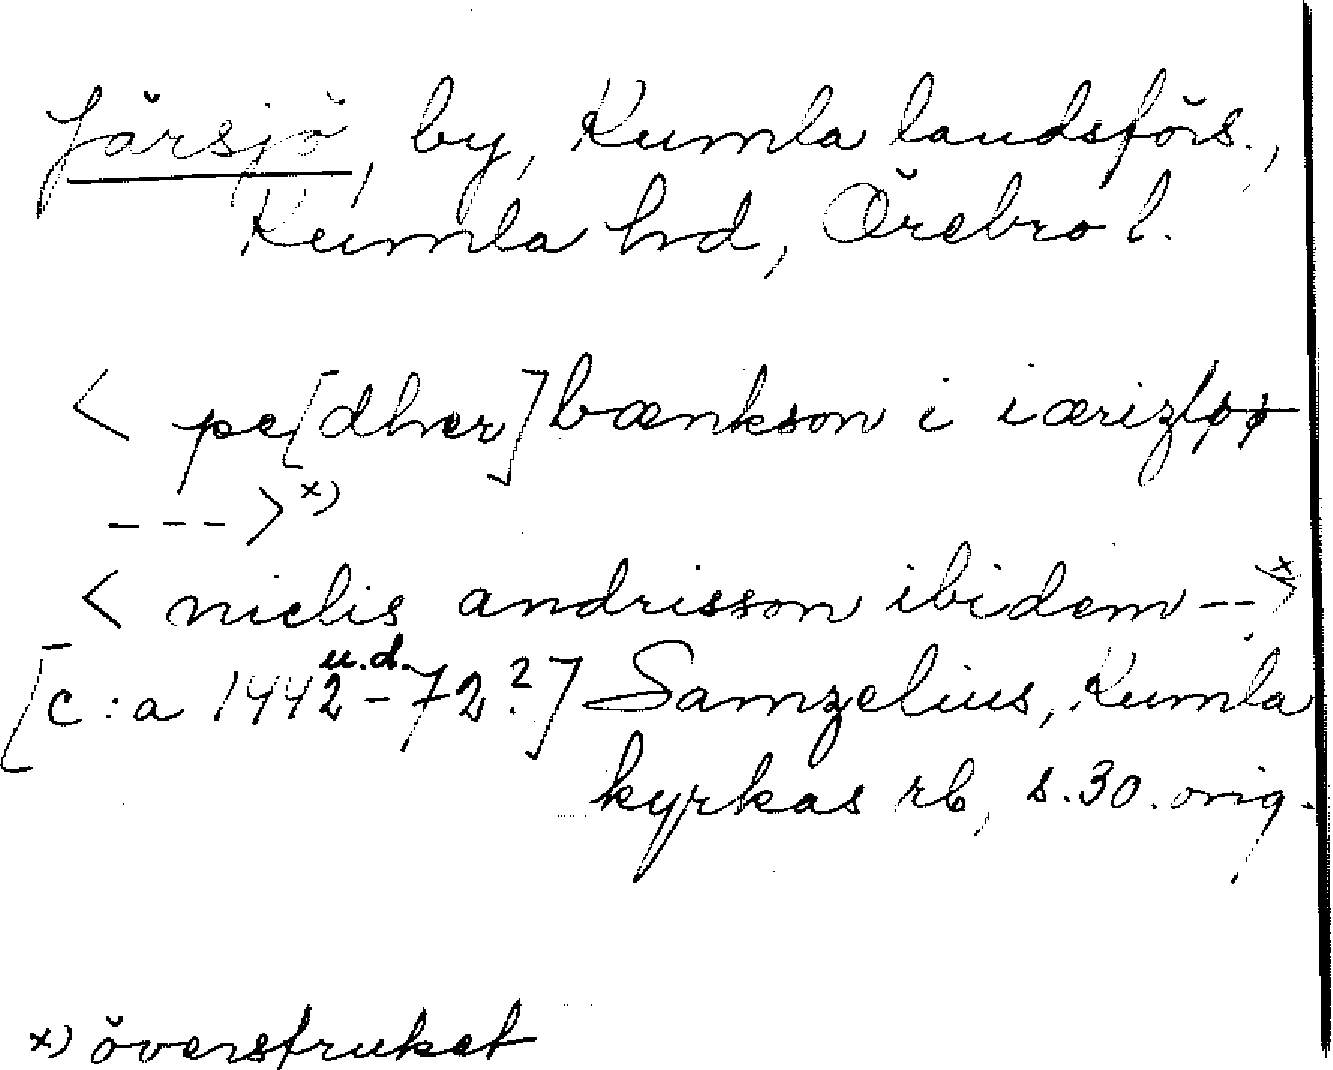 Järsjö, by, Kumla landsförs.,
Kumla hd, Örebro l.
< pe[dher] bænkson i iærizløø
--- >x)
< nielis andrisson ibidem -->x)
[c:a 1442 u.d. -72?] Samzelius, Kumla
kyrkas rb, s. 30. orig.
x) överstruket